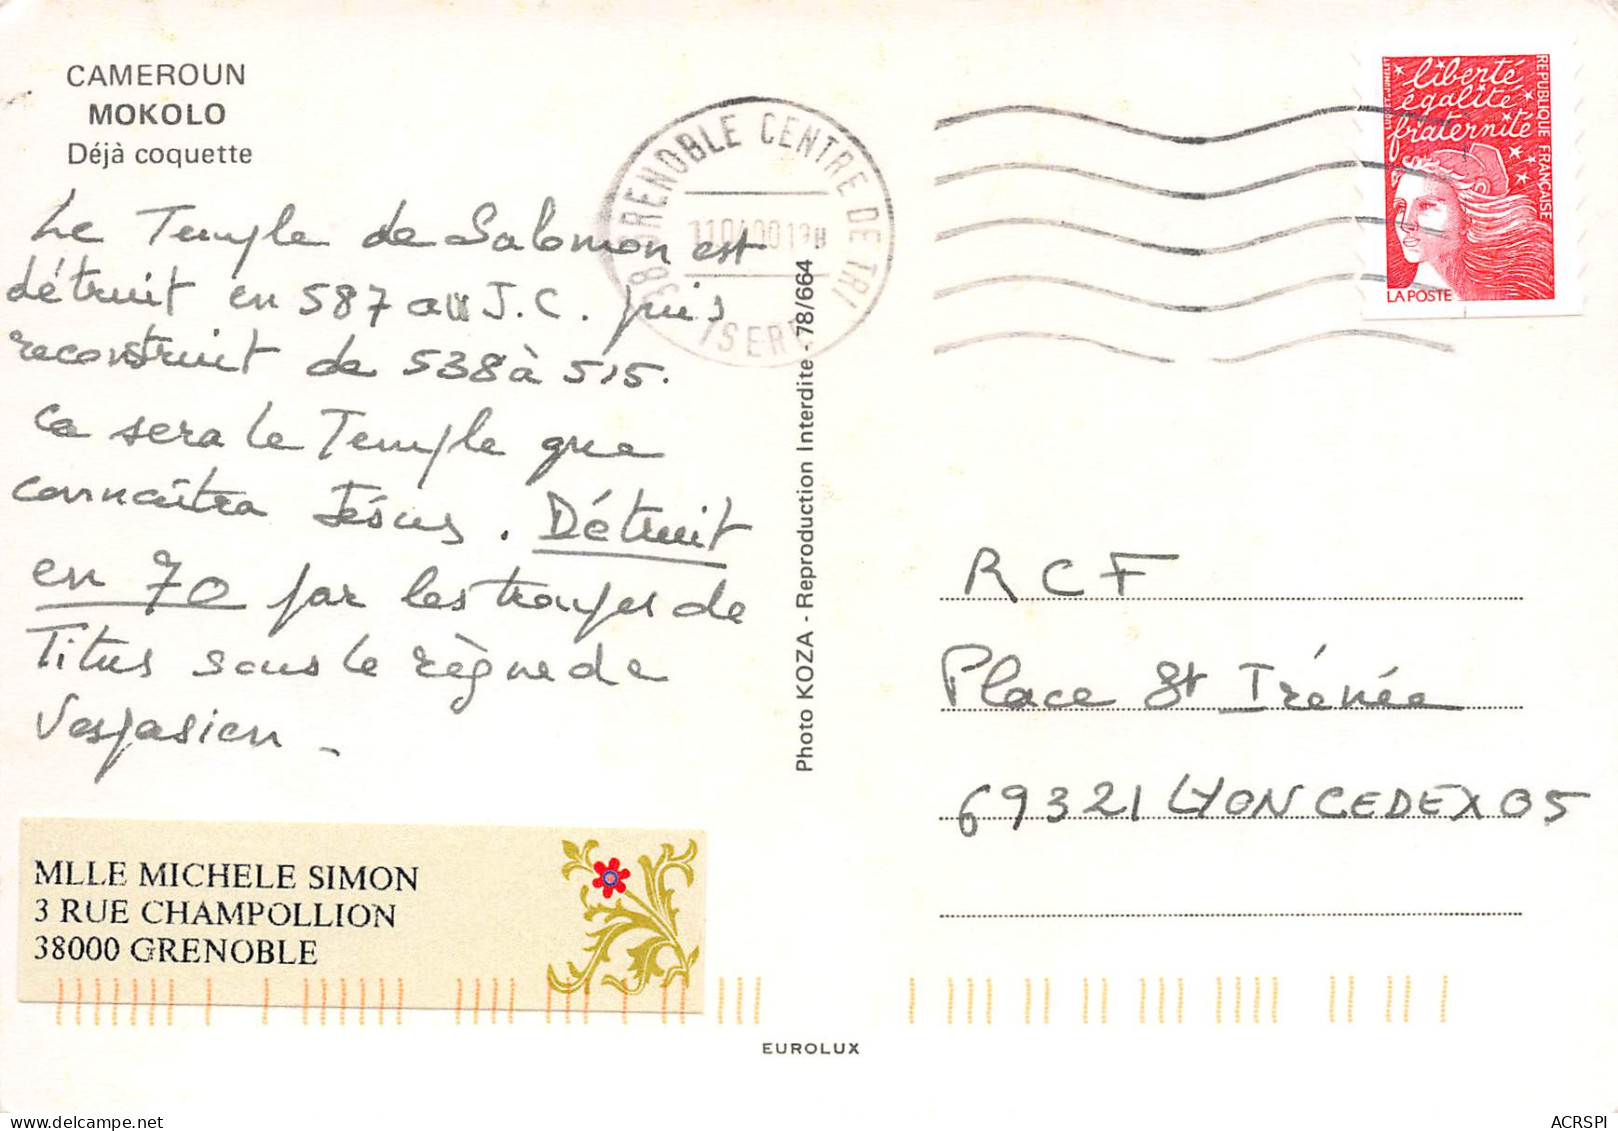 CAMEROUN
MOKOLO
Déjà coquette
Le Temple de Salomon est
détruit en 587 av J.C. puis
reconstruit de 538 à 515.
Ca sera le Temple que
connaîtra Jésus. Détruit
en 70 par les troupes de
Titus sous le règne de
Vespasien _
MLLE MICHELE SIMON
3 RUE CHAMPOLLION
38000 GRENOBLE
38 GRENOBLE CENTRE DE TRI
ISERE
Photo KOZA - Reproduction Interdite - 78/664
EUROLUX
liberté
égalité
fraternité
REPUBLIQUE FRANÇAISE
LA POSTE
R C F
Place St Irénée
69321 LYON CEDEX 05
ACRSPI